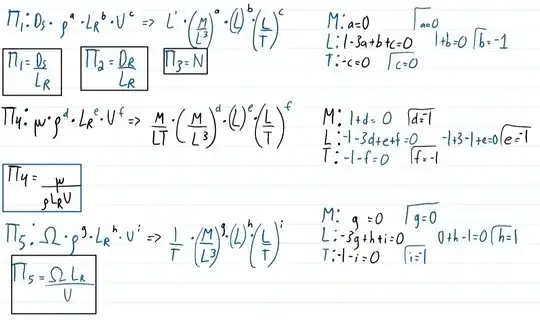 Π₁: Ds · ρᵃ · L_Rᵇ · Uᶜ => L¹ · (M/L³)ᵃ · (L)ᵇ · (L/T)ᶜ
M: a=0 a=0
L: 1-3a+b+c=0 1+b=0 b=-1
T: -c=0 c=0
Π₁ = Ds/L_R Π₂ = D_R/L_R Π₃ = N
Π₄: μ · ρᵈ · L_Rᵉ · Uᶠ => M/LT · (M/L³)ᵈ · (L)ᵉ · (L/T)ᶠ
M: 1+d=0 d=-1
L: -1-3d+e+f=0 -1+3-1+e=0 e=-1
T: -1-f=0 f=-1
Π₄ = μ/ρL_RU
Π₅: Ω · ρᵍ · L_Rʰ · Uⁱ => 1/T · (M/L³)ᵍ · (L)ʰ · (L/T)ⁱ
M: g=0 g=0
L: -3g+h+i=0 0+h-1=0 h=1
T: -1-i=0 i=-1
Π₅ = Ω L_R/U